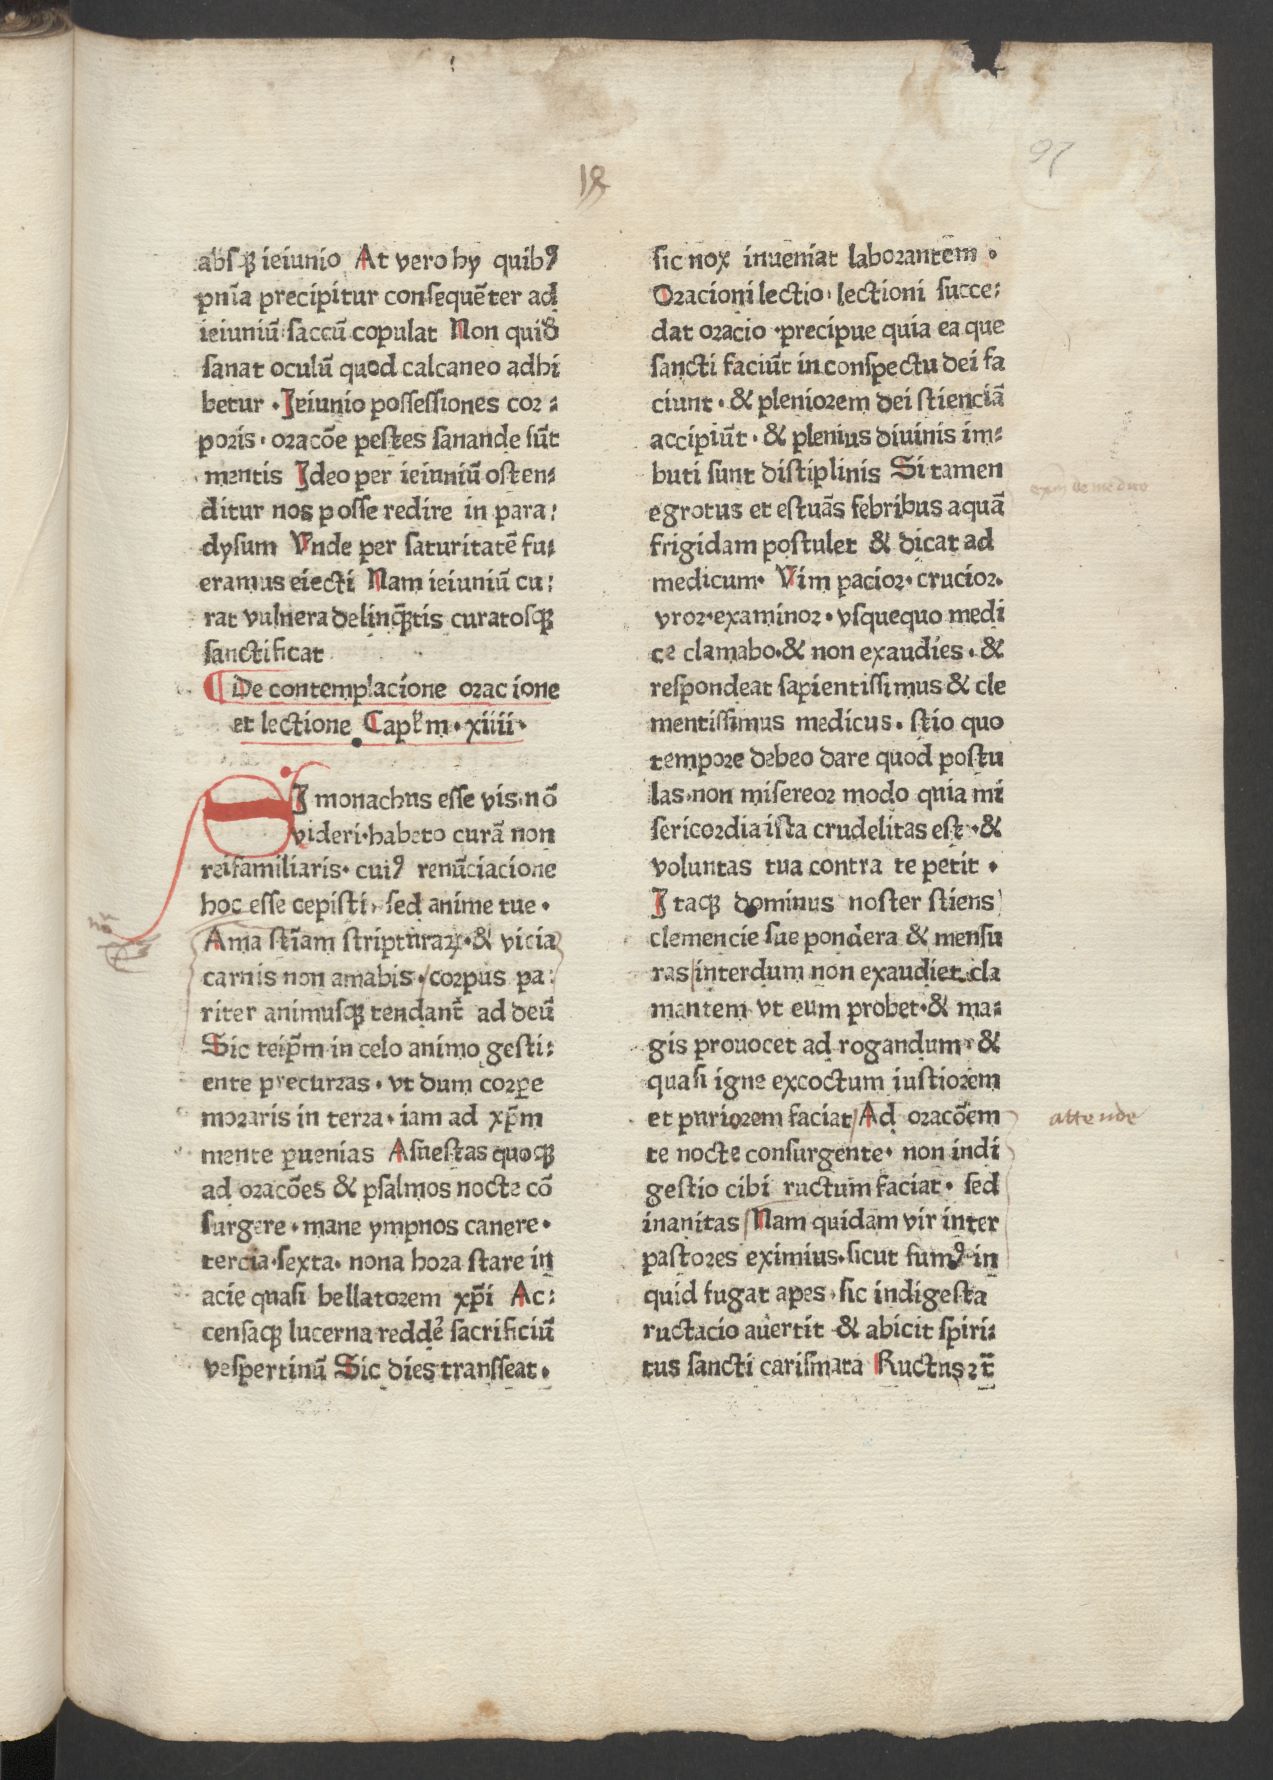 18
97
absqꝫ ieiunio At vero hy quibꝰ
pnīa precipitur consequēter ad
ieiuniū saccū copulat Non quid̕
sanat oculū quod calcaneo adhi
betur · Ieiunio possessiones cor⸗
poris · oracōe pestes sanande sūt
mentis Ideo per ieiuniū osten⸗
ditur nos posse redire in para⸗
dysum Vnde per saturitatē fu⸗
eramus eiecti Nam ieiuniū cu⸗
rat vulnera delinq̄tis curatosqꝫ
sanctificat
De contemplacione oracione
et lectione Capl̕m · xiiii ·
SI monachus esse vis · nō
videri · habeto curā non
rei familiaris · cuiꝰ renūciacione
hoc esse cepisti · sed anime tue ·
Ama stiām stripturaꝝ · & vicia
carnis non amabis · corpus pa⸗
riter animusqꝫ tendant̄ ad deū
Sic teip̄m in celo animo gesti⸗
ente precurras · vt dum corꝑe
moraris in terra · iam ad xp̄m
mente ꝑuenias Asuestas quoqꝫ
ad oracōes & psalmos nocte cō
surgere · mane ympnos canere ·
tercia · sexta · nona hora stare in
acie quasi bellatorem xp̄i Ac⸗
censaqꝫ lucerna redde᷑ sacrificiū
vespertinū Sic dies transseat ·
sic nox inueniat laborantem ·
Oracioni lectio · lectioni succe⸗
dat oracio · precipue quia ea que
sancti faciūt in conspectu dei fa
ciunt · & pleniorem dei stienciā
accipiūt · & plenius diuinis im⸗
buti sunt distiplinis Si tamen
egrotus et estuās febribus aquā
frigidam postulet & dicat ad
medicum · Vim pacior · crucior ·
vror · examinor · vsquequo medi
ce clamabo · & non exaudies · &
respondeat sapientissimus & cle
mentissimus medicus · stio quo
tempore debeo dare quod postu
las · non misereor modo quia mi
sericordia ista crudelitas est · &
voluntas tua contra te petit ·
Itaqꝫ dominus noster stiens
clemencie sue pondera & mensu
ras interdum non exaudiet cla
mantem vt eum probet · & ma⸗
gis prouocet ad rogandum · &
quasi igne excoctum iustiorem
et puriorem faciat Ad oracōem
te nocte consurgente · non indi
gestio cibi ructum faciat · sed
inanitas Nam quidam vir inter
pastores eximius · sicut fumꝰ in
quid fugat apes · sic indigesta
ructacio auertit & abicit spiri⸗
tus sancti carismata Ructus ꝛt̄
attende